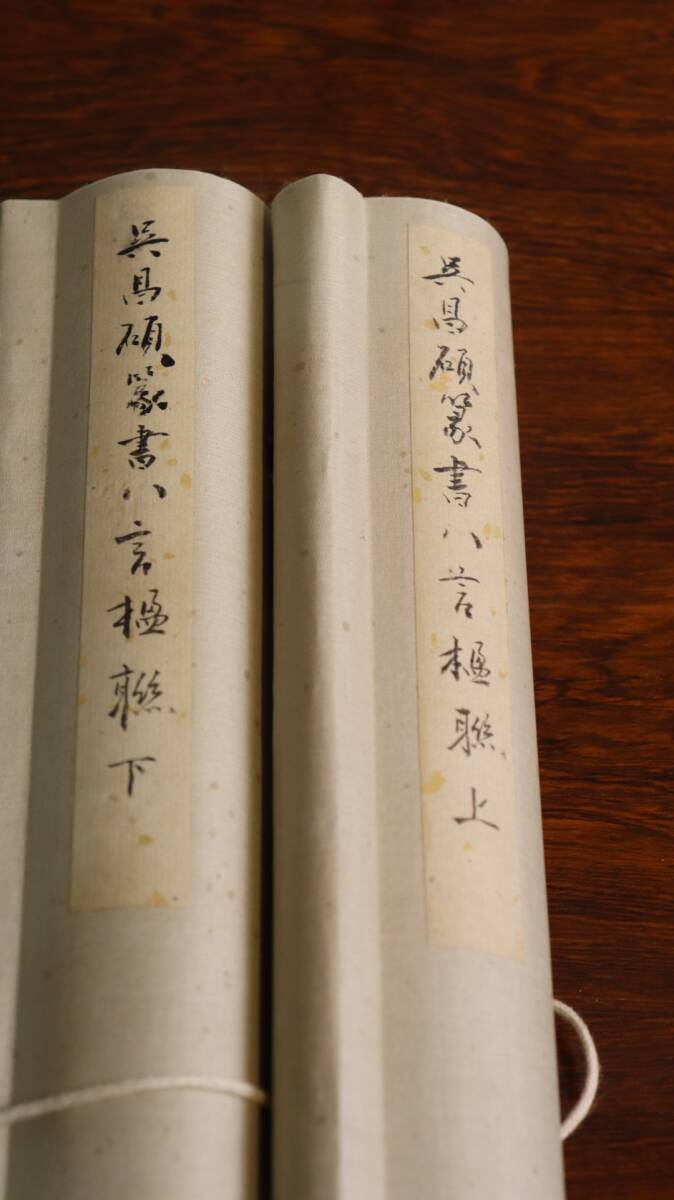 吳昌碩篆書八言楹聯上
吳昌碩篆書八言楹聯下